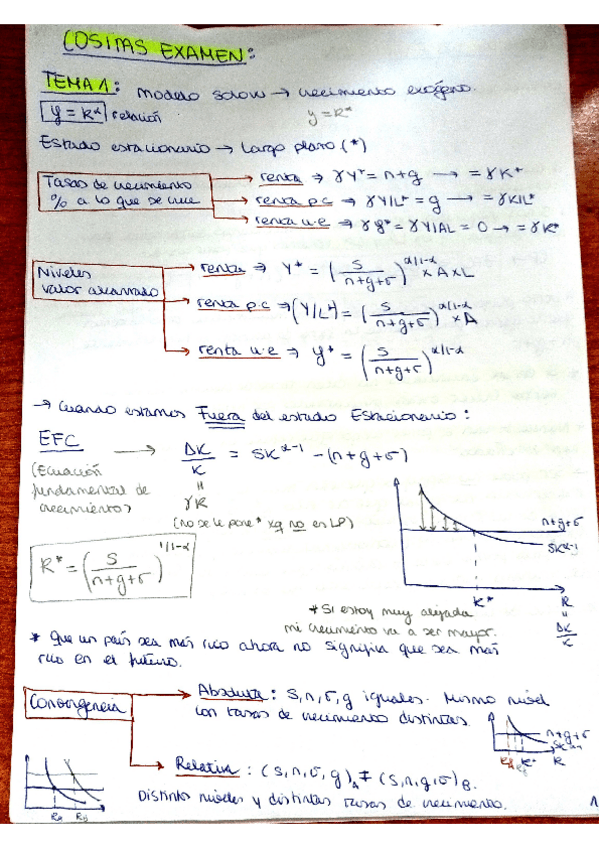 COSITAS EXAMEN:
TEMA 1: Modelo Solow → crecimiento exógeno.
y = k^α relación y = k^α
Estado estacionario → Largo plazo (*)
Tasas de crecimiento % a lo que se crece
renta ⇒ γY* = n+g → = γK*
renta p.c ⇒ γY/L* = g → = γK/L*
renta u.e ⇒ γy* = γY/AL = 0 → = γk*
Niveles valor alcanzado
renta ⇒ Y* = (s/(n+g+σ))^α/1-α × A × L
renta p.c ⇒ (Y/L*) = (s/(n+g+σ))^α/1-α × A
renta u.e ⇒ y* = (s/(n+g+σ))^α/1-α
→ Cuando estamos Fuera del estado Estacionario:
EFC → Δk/k = sk^α-1 - (n+g+σ)
(Ecuación fundamental de crecimiento)
=
γk
(no se le pone * xq no en LP)
k* = (s/(n+g+σ))^1/1-α
n+g+σ
sk^α-1
k* k
=
Δk/k
* Si estoy muy alejada
mi crecimiento va a ser mayor.
* Que un país sea más rico ahora no significa que sea más
rico en el futuro.
Convergencia
Absoluta: s, n, σ, g iguales. Mismo nivel
con tasas de crecimiento distintas.
n+g+σ
k* k
Relativa: (s, n, σ, g)A ≠ (s, n, g, σ)B.
Distintos niveles y distintas tasas de crecimiento.
1